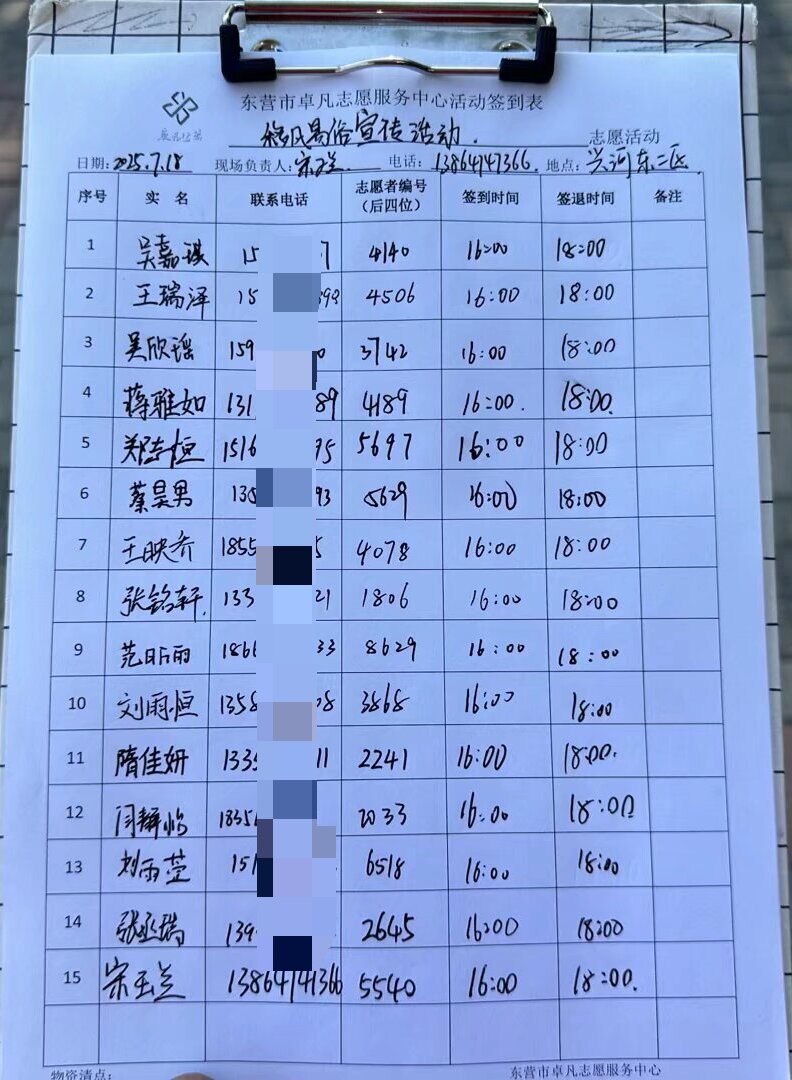 东营市卓凡志愿服务中心活动签到表
移风易俗宣传活动. 志愿活动
日期: 2025.7.18 现场负责人: 宋玉兰 电话: 13864747366. 地点: 兴河东二区
序号 实 名 联系电话 志愿者编号（后四位） 签到时间 签退时间 备注
1 吴嘉琪 15 7 4140 16:00 18:00
2 王瑞泽 15 393 4506 16:00 18:00
3 吴欣瑶 159 0 3742 16:00 18:00
4 蒋雅如 131 89 4189 16:00. 18:00.
5 郑志恒 1516 95 5697 16:00 18:00
6 蔡昊男 135 93 5629 16:00 18:00
7 王映乔 1855 5 4078 16:00 18:00
8 张铭轩. 133 21 1806 16:00 18:00
9 范昕雨 1866 33 8629 16:00 18:00
10 刘雨恒 1358 08 3868 16:00 18:00
11 隋佳妍 1335 11 2241 16:00 18:00.
12 闫静怡 1835 2033 16:00 18:00
13 刘雨萱 151 6518 16:00 18:00
14 张丞瑞 139 2645 16:00 18:00
15 宋玉兰 13864741366 5540 16:00 18:00.
物资清点: 东营市卓凡志愿服务中心